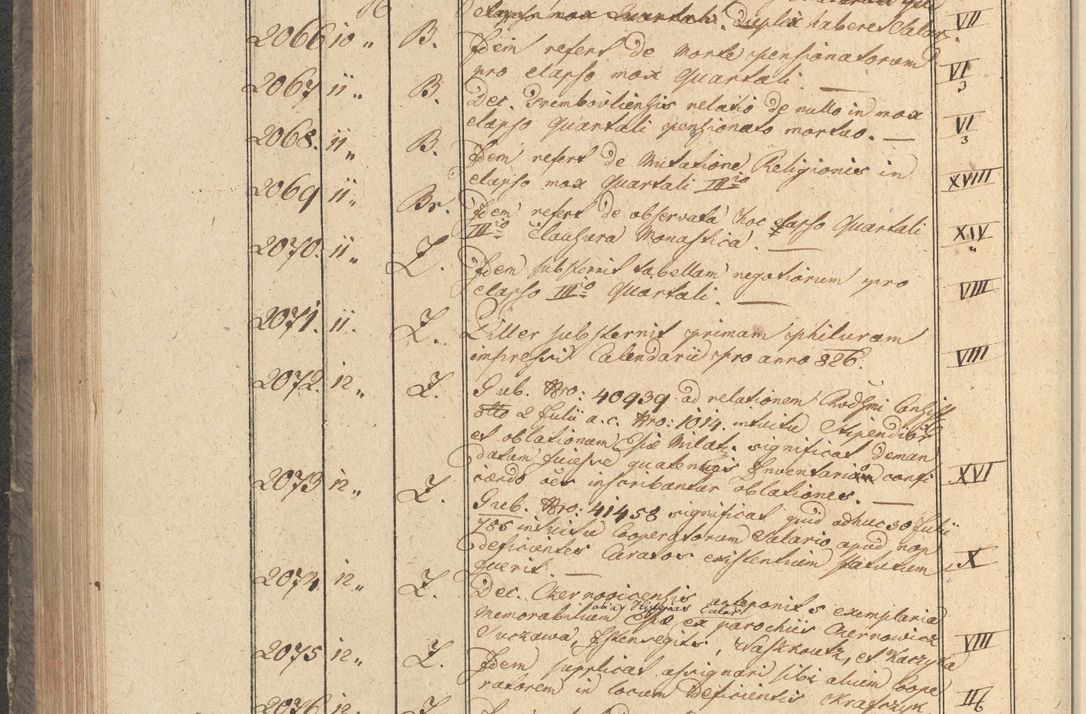 elapso mox Quartali. Duplex habere Salar. VII
2066 10 „ B. Idem refert de Morte pensionatorum
pro elapso mox Quartali. — VI 3
2067 11 „ B. Dec. Trembovliensis relatio de nullo in mox
elapso Quartali pensionato mortuo. — VI 3
2068. 11 „ B. Idem refert de Mutatione Religionis in
elapso mox Quartali III io XVIII
2069 11 „ Br. Idem refert de observata hoc elapso Quartali
III io Clausura Monastica. — XIV „
2070. 11 „ Z. Idem substernit tabellam negotiorum pro
elapso III io Quartali. — VIII
2071. 11. Z. Piller substernit primam philuram
impressi Calendarii pro anno 826. VIII
2072. 12 „ Z. Gub. Nro: 40939 ad relationem
2 Julii a. c. Nro: 1014. intuitu Stipendior
et oblationum significat deman
datum fuisse quatenus Inventario confi
ciendo inscribantur oblationes. — XVI
2073 12 „ Z. Gub. Nro: 41458 significat quid adhuc 30 Julii
785 intuitu Cooperatorum Salario apud non
deficientes Curatos existentium statutum
fuerit. — X
2074 12 „ Z. Dec. Czernovicensis anteponit 5 exemplaria
Memorabilium ex parochiis Czernowicz
Suczawa, Waszkoutz, et Kaczyka VIII
2075 12 „ Z. Idem supplicat assignari sibi alium Coope
ratorem in locum Deficientis II 6
2076 12 Z.